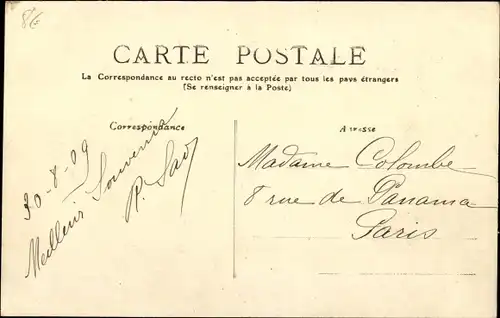 8€
CARTE POSTALE
La Correspondance au recto n'est pas acceptée par tous les pays étrangers
(Se renseigner à la Poste)
Correspondance
30-8-09
Meilleur Souvenir
Adresse
Madame Colombe
8 rue de Panama
Paris